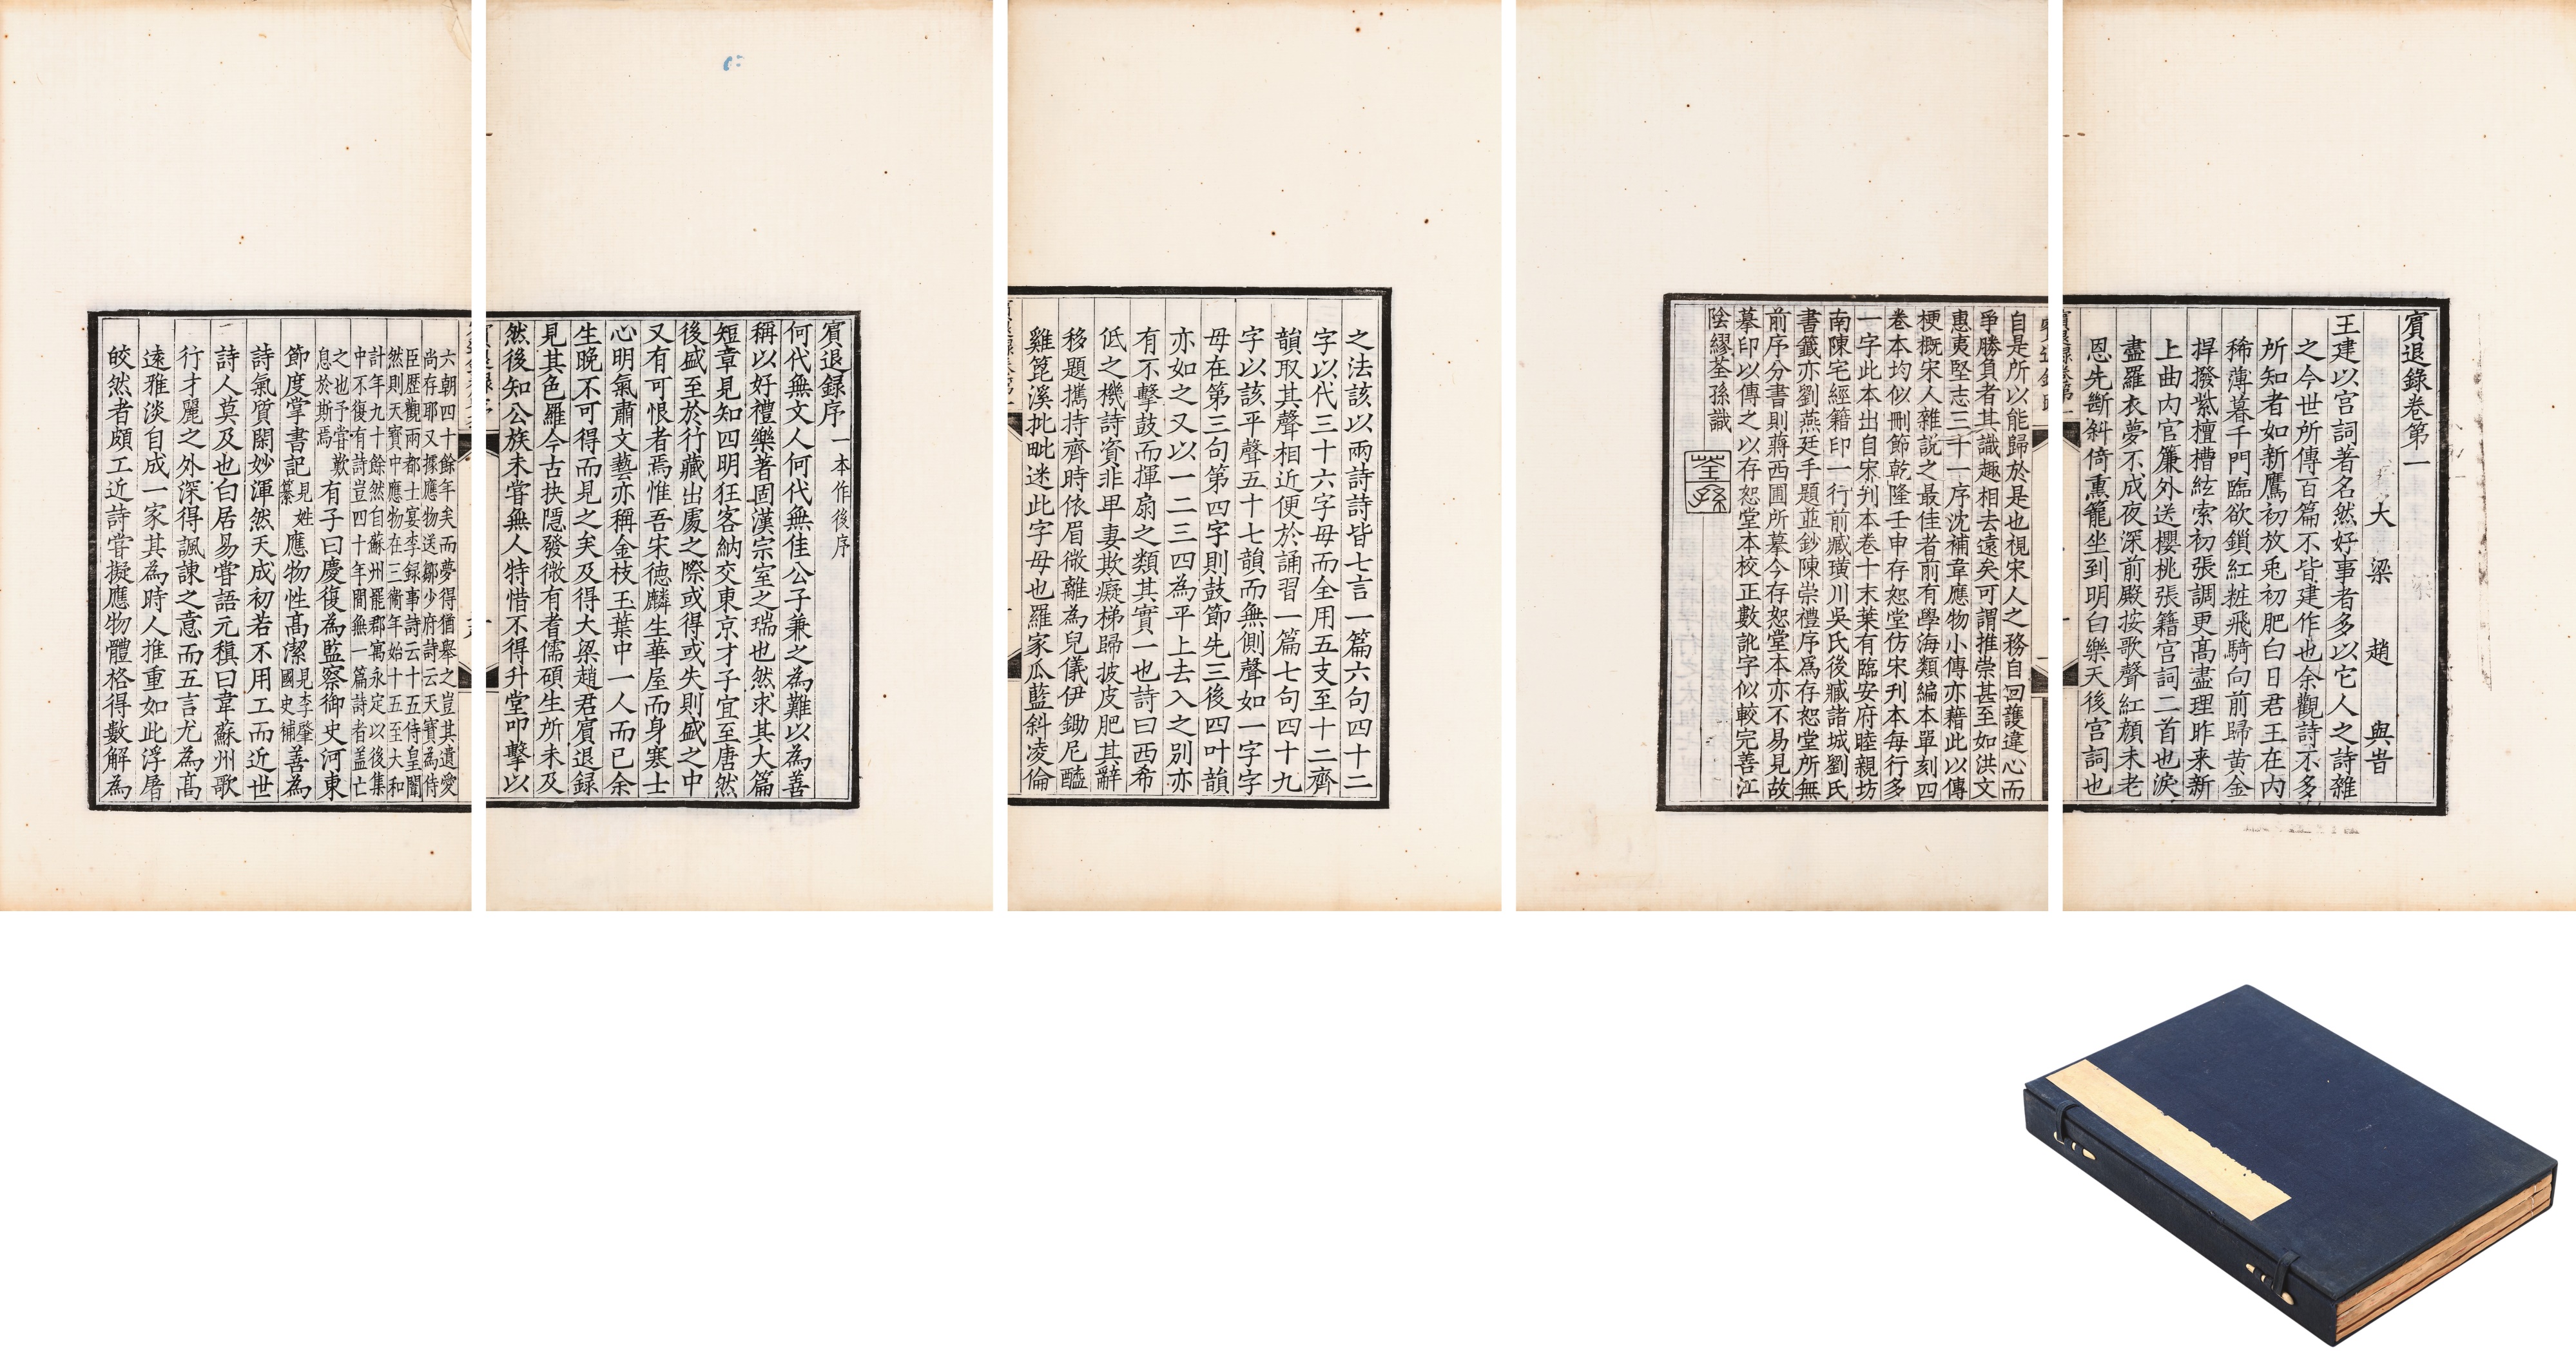 賔退録卷第一
大梁趙與旹
王建以宫詞著名然好事者多以它人之詩雜
之今世所傳百篇不皆建作也余觀詩不多
所知者如新鷹初放兎初肥白日君王在内
稀薄暮千門臨欲鎖紅粧飛騎向前歸黄金
捍撥紫檀槽絃索初張調更髙盡理昨来新
上曲内官簾外送櫻桃張籍宫詞二首也淚
盡羅衣夢不成夜深前殿按歌聲紅顔未老
恩先斷斜倚熏籠坐到明白樂天後宫詞也
自是所以能歸於是也視宋人之務自回護違心而
爭勝負者其識趣相去遠矣可謂推崇甚至如洪文
惠夷堅志三十一序沈補韋應物小傳亦藉此以傳
梗概宋人雜説之最佳者前有學海類編本單刻四
卷本均似刪節乾隆壬申存恕堂仿宋刋本每行多
一字此本出自宋刋本卷十末葉有臨安府睦親坊
南陳宅經籍印一行前臧璜川吳氏後臧諸城劉氏
書籤亦劉燕廷手題並鈔陳崇禮序爲存恕堂所無
前序分書則蔣西圃所摹今存恕堂本亦不易見故
摹印以傳之以存恕堂本校正數訛字似較完善江
陰繆荃孫識
荃孫
之法該以兩詩詩皆七言一篇六句四十二
字以代三十六字母而全用五支至十二齊
韻取其聲相近便於誦習一篇七句四十九
字以該平聲五十七韻而無側聲如一字字
母在第三句第四字則鼓節先三後四叶韻
亦如之又以一二三四為平上去入之别亦
有不擊鼓而揮扇之類其實一也詩曰西希
低之機詩資非卑妻欺癡梯歸披皮肥其辭
移題攜持齊時依眉微離為兒儀伊鋤尼醯
雞箆溪批毗迷此字母也羅家瓜藍斜凌倫
賔退録序 一本作後序
何代無文人何代無佳公子兼之為難以為善
稱以好禮樂著固漢宗室之瑞也然求其大篇
短章見知四明狂客納交東京才子宜至唐然
後盛至於行藏出處之際或得或失則盛之中
又有可恨者焉惟吾宋德麟生華屋而身寒士
心明氣肅文藝亦稱金枝玉葉中一人而已余
生晚不可得而見之矣及得大梁趙君賔退録
見其色羅今古抉隱發微有耆儒碩生所未及
然後知公族未嘗無人特惜不得升堂叩擊以
六朝四十餘年矣而夢得猶舉之豈其遺愛
尚存耶又據應物送鄒少府詩云天寶為侍
臣歴觀兩都士宴李録事詩云十五侍皇闈
然則天寶中應物在三衛年始十五至大和
計年九十餘然自蘇州罷郡寓永定以後集
中不復有詩豈四十年間無一篇詩者盖亡
之也予嘗歎
息於斯焉 有子曰慶復為監察御史河東
節度掌書記見姓
纂 應物性髙潔見李肇
國史補 善為
詩氣質閑妙渾然天成初若不用工而近世
詩人莫及也白居易嘗語元稹曰韋蘇州歌
行才麗之外深得諷諫之意而五言尤為髙
遠雅淡自成一家其為時人推重如此浮屠
皎然者頗工近詩嘗擬應物體格得數解為